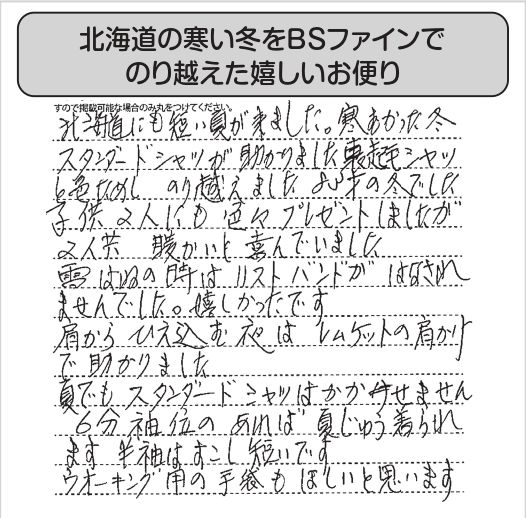 北海道の寒い冬をBSファインで
のり越えた嬉しいお便り
すので掲載可能な場合のみ丸をつけてください。
北海道にも短い夏が来ました。寒あかった冬
スタンダードシャツが助かりました 裏起毛シャツ
も色ためし のり越えました の冬でした
子供2人にも色々プレゼントしましたが
2人共 暖かいと喜んでいました
雪はねの時はリストバンドが はなされ
ませんでした。嬉しかったです
肩から ひえ込む夜は レムケットの肩かけ
で助かりました
夏でも スタンダードシャツはかか せません
6分袖位の あれば 夏じゅう着られ
ます 半袖はすこし短いです
ウオーキング用の手袋もほしいと思います